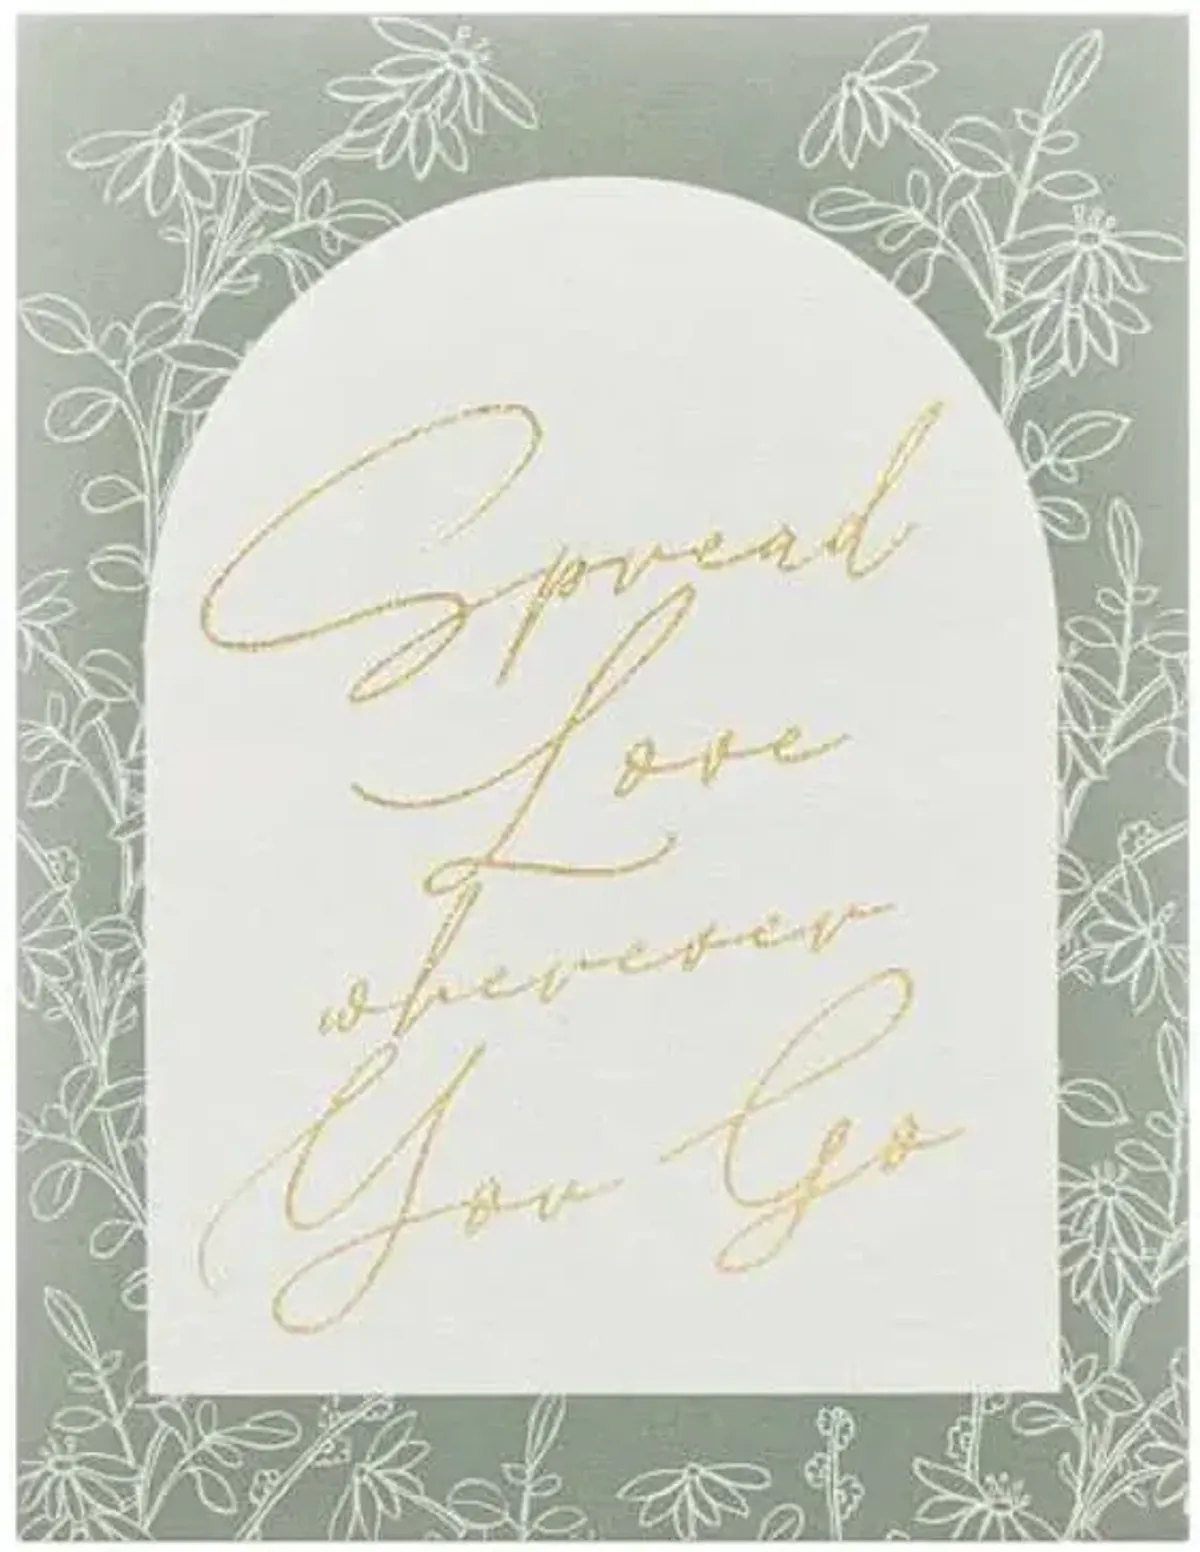 Spread
Love
wherever
You Go